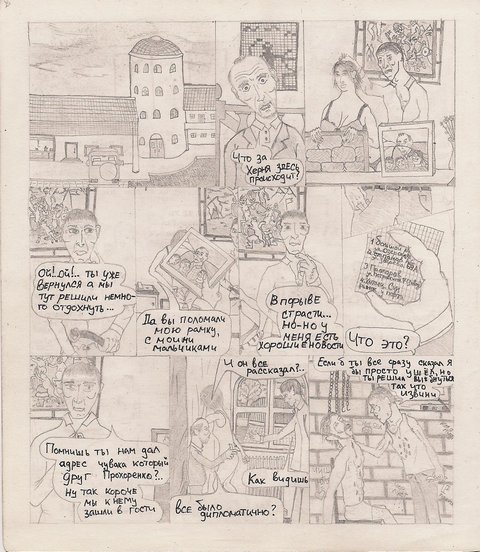 Что за
херня здесь
происходит?
Ой! Ой!.. ты уже
вернулся а мы
тут решили немно-
го отдохнуть...
Да вы поломали
мою рамку,
с моими
мальчиками
В порыве
страсти...
Но-но у
меня есть
хорошие новости
Что это?
Помнишь ты нам дал
адрес чувака который
друг Прохоренко?..
Ну так короче
мы к нему
зашли в гости
И он все
рассказал?..
Как видишь
все было
дипломатично?
Если б ты все сразу сказал я
бы просто ушёл, но
ты решил
так что
извини